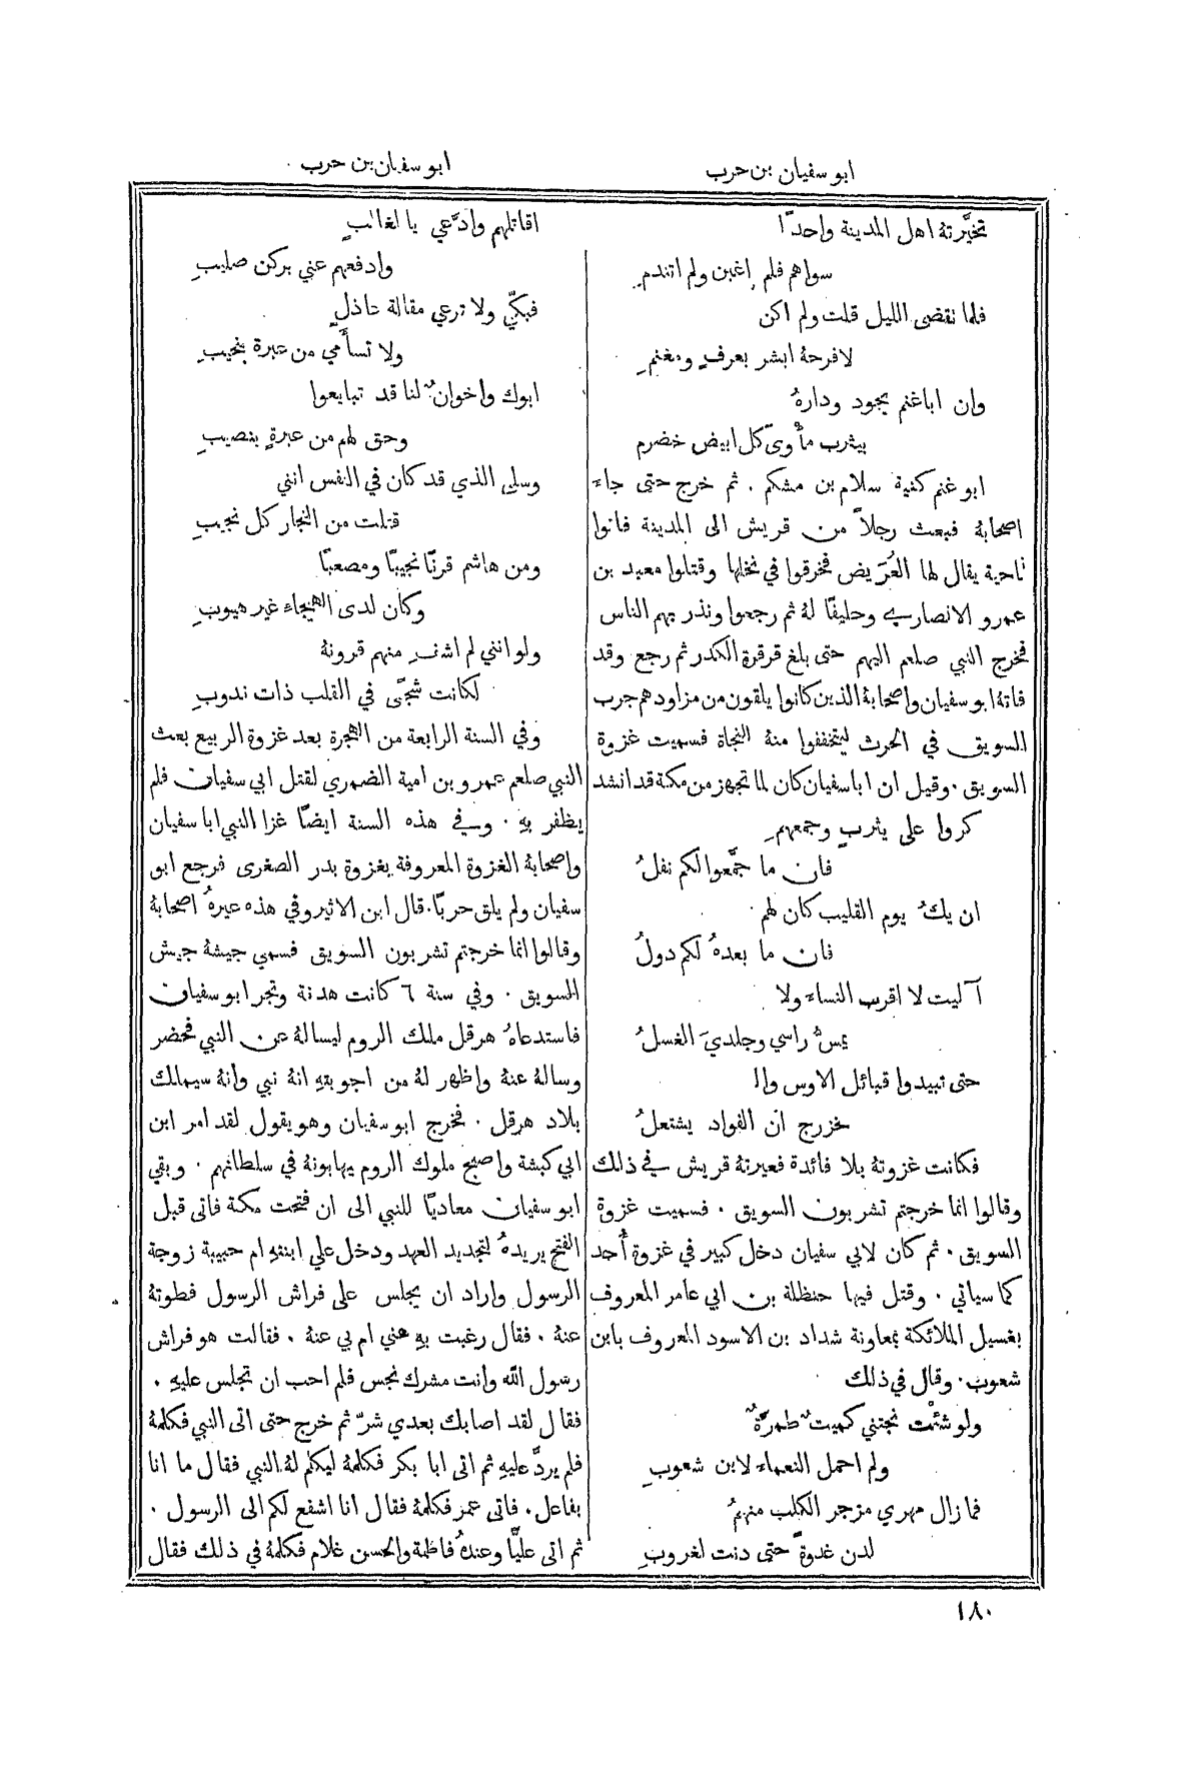 ابو سفيان بن حرب
ابو سفيان بن حرب
تخيَّرتهُ اهل المدينة واحدًا
سواهم فلم اغبن ولم اتندمِ
فلما نقضى الليل قلت ولم اكن
لافرحهُ ابشر بعرفٍ ومغنمِ
وان اباغنم يجود ودارهُ
بيثرب مأوىّ كل ابيض خضرم
ابو غنم كنية سلام بن مشكم . ثم خرج حتى جاء
اصحابهُ فبعث رجلاً من قريش الى المدينة فاتوا
ناحية يقال لها العُرَيض فحرقوا في نخلها وقتلوا معبد بن
عمرو الانصاري وحليفًا لهُ ثم رجعوا ونذر بهم الناس
فخرج النبي صلعم اليهم حتى بلغ قرقرة الكدر ثم رجع وقد
فاتهُ ابو سفيان واصحابهُ الذين كانوا يلقون من مزاودهم جرب
السويق في الحرث ليتخففوا منهُ النجاة فسميت غزوة
السويق . وقيل ان اباسفيان كان لما تجهز من مكة قد انشد
كروا على يثربٍ وجمعهمِ
فان ما جمَّعوا لكم نفلُ
ان يكُ يوم القليب كان لهم
فان ما بعدهُ لكم دولُ
آليت لا اقرب النساء ولا
يمسُّ راسي وجلديَ الغسلُ
حتى تبيدوا قبائل الاوس والـ
خزرج ان الفواد يشتعلُ
فكانت غزوتهُ بلا فائدة فعيرتهُ قريش في ذلك
وقالوا انما خرجتم تشربون السويق . فسميت غزوة
السويق . ثم كان لابي سفيان دخل كبير في غزوة أُحد
كما سياتي . وقتل فيها حنظلة بن ابي عامر المعروف
بغسيل الملائكة بمعاونة شداد بن الاسود المعروف بابن
شعوب . وقال في ذلك
ولو شئْت نجتني كميتٌ طمرَّةٌ
ولم احمل النعماء لابن شعوبِ
فما زال مهري مزجر الكلب منهمُ
لدن غدوةً حتى دنت لغروبِ
اقاتلهم وادَّعي يا لغالبٍ
وادفعهم عني بركن صليبِ
فبكّي ولا ترعي مقالة عاذلٍ
ولا تسأَمي من عبرة بنحيبِ
ابوك واخوانٌ لنا قد تبايعوا
وحق لهم من عبرةٍ بنصيبِ
وسلي الذي قد كان في النفس انني
قتلت من النجار كل نجيبِ
ومن هاشم قرنًا نجيبًا ومصعبًا
وكان لدى الهيجاء غير هيوبِ
ولو انني لم اشفِ منهم قرونهُ
لكانت شجًى في القلب ذات ندوبِ
وفي السنة الرابعة من الهجرة بعد غزوة الربيع بعث
النبي صلعم عمرو بن امية الضمري لقتل ابي سفيان فلم
يظفر بهِ . وفي هذه السنة ايضًا غزا النبي ابا سفيان
واصحابهُ الغزوة المعروفة بغزوة بدر الصغرى فرجع ابو
سفيان ولم يلق حربًا. قال ابن الاثير وفي هذه عيرهُ اصحابهُ
وقالوا انما خرجتم تشربون السويق فسمي جيشهُ جيش
السويق . وفي سنة ٦ كانت هدنة وتجر ابو سفيان
فاستدعاهُ هرقل ملك الروم ليسالهُ عن النبي فحضر
وسالهُ عنهُ واظهر لهُ من اجوبتهِ انهُ نبي وانهُ سيملك
بلاد هرقل . فخرج ابو سفيان وهو يقول لقد امر ابن
ابي كبشة واصبح ملوك الروم يهابونهُ في سلطانهم . وبقي
ابو سفيان معاديًا للنبي الى ان فتحت مكة فاتى قبل
الفتح يريدهُ لتجديد العهد ودخل على ابنتهِ ام حبيبة زوجة
الرسول واراد ان يجلس على فراش الرسول فطوتهُ
عنهُ . فقال رغبت بهِ عني ام بي عنهُ . فقالت هو فراش
رسول الله وانت مشرك نجس فلم احب ان تجلس عليهِ .
فقال لقد اصابك بعدي شرّ ثم خرج حتى اتى النبي فكلمهُ
فلم يردَّ عليهِ ثم اتى ابا بكر فكلمهُ ليكلم لهُ النبي فقال ما انا
بفاعل . فاتى عمر فكلمهُ فقال انا اشفع لكم الى الرسول .
ثم اتى عليًّا وعندهُ فاطمة والحسن غلام فكلمهُ في ذلك فقال
١٨٠